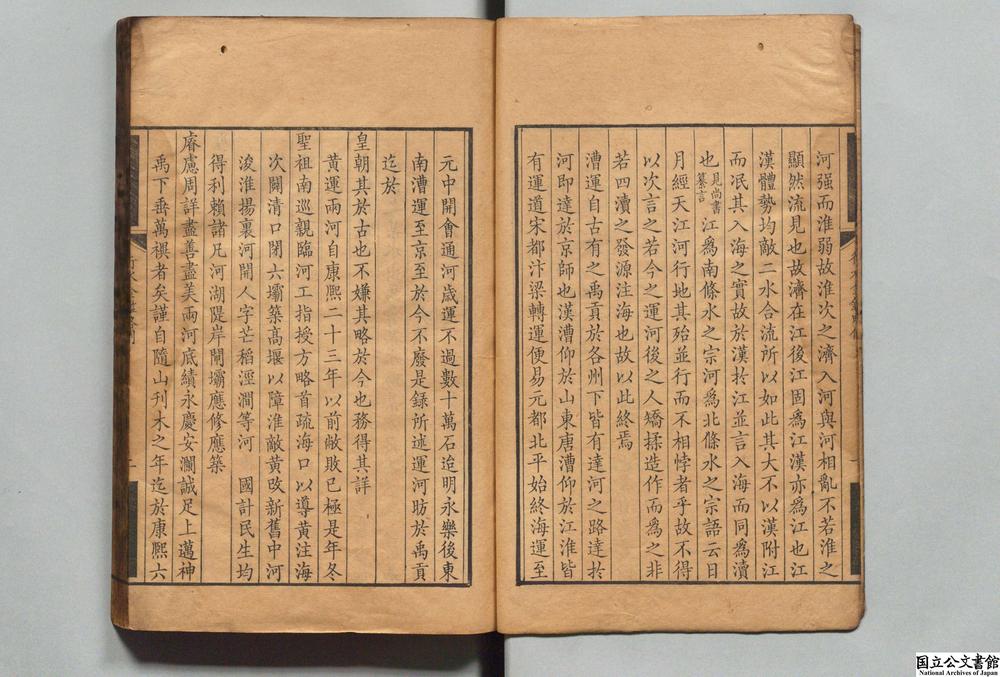 河强而淮弱故淮次之濟入河與河相亂不若淮之
顯然流見也故濟在江後江固爲江漢亦爲江也江
漢體勢均敵二水合流所以如此其大不以漢附江
而泯其入海之實故於漢於江並言入海而同爲瀆
也見尚書纂言江爲南條水之宗河爲北條水之宗語云日
月經天江河行地其殆並行而不相悖者乎故不得
以次言之若今之運河後之人矯揉造作而爲之非
若四瀆之發源注海也故以此終焉
漕運自古有之禹貢於各州下皆有達河之路達於
河即達於京師也漢漕仰於山東唐漕仰於江淮皆
有運道宋都汴梁轉運便易元都北平始終海運至
元中開會通河歲運不過數十萬石迨明永樂後東
南漕運至京至於今不廢是録所述運河昉於禹貢
迄於
皇朝其於古也不嫌其略於今也務得其詳
黃運兩河自康熙二十三年以前敝敗已極是年冬
聖祖南巡親臨河工指授方略首疏海口以導黃注海
次闢清口閉六壩築高堰以障淮敵黃改新舊中河
浚淮揚裏河開人字芒稻涇澗等河 國計民生均
得利賴諸凡河湖隄岸閘壩應修應築
睿慮周詳盡善盡美兩河底績永慶安瀾誠足上邁神
禹下垂萬禩者矣謹自隨山刊木之年迄於康熙六
国立公文書館
National Archives of Japan